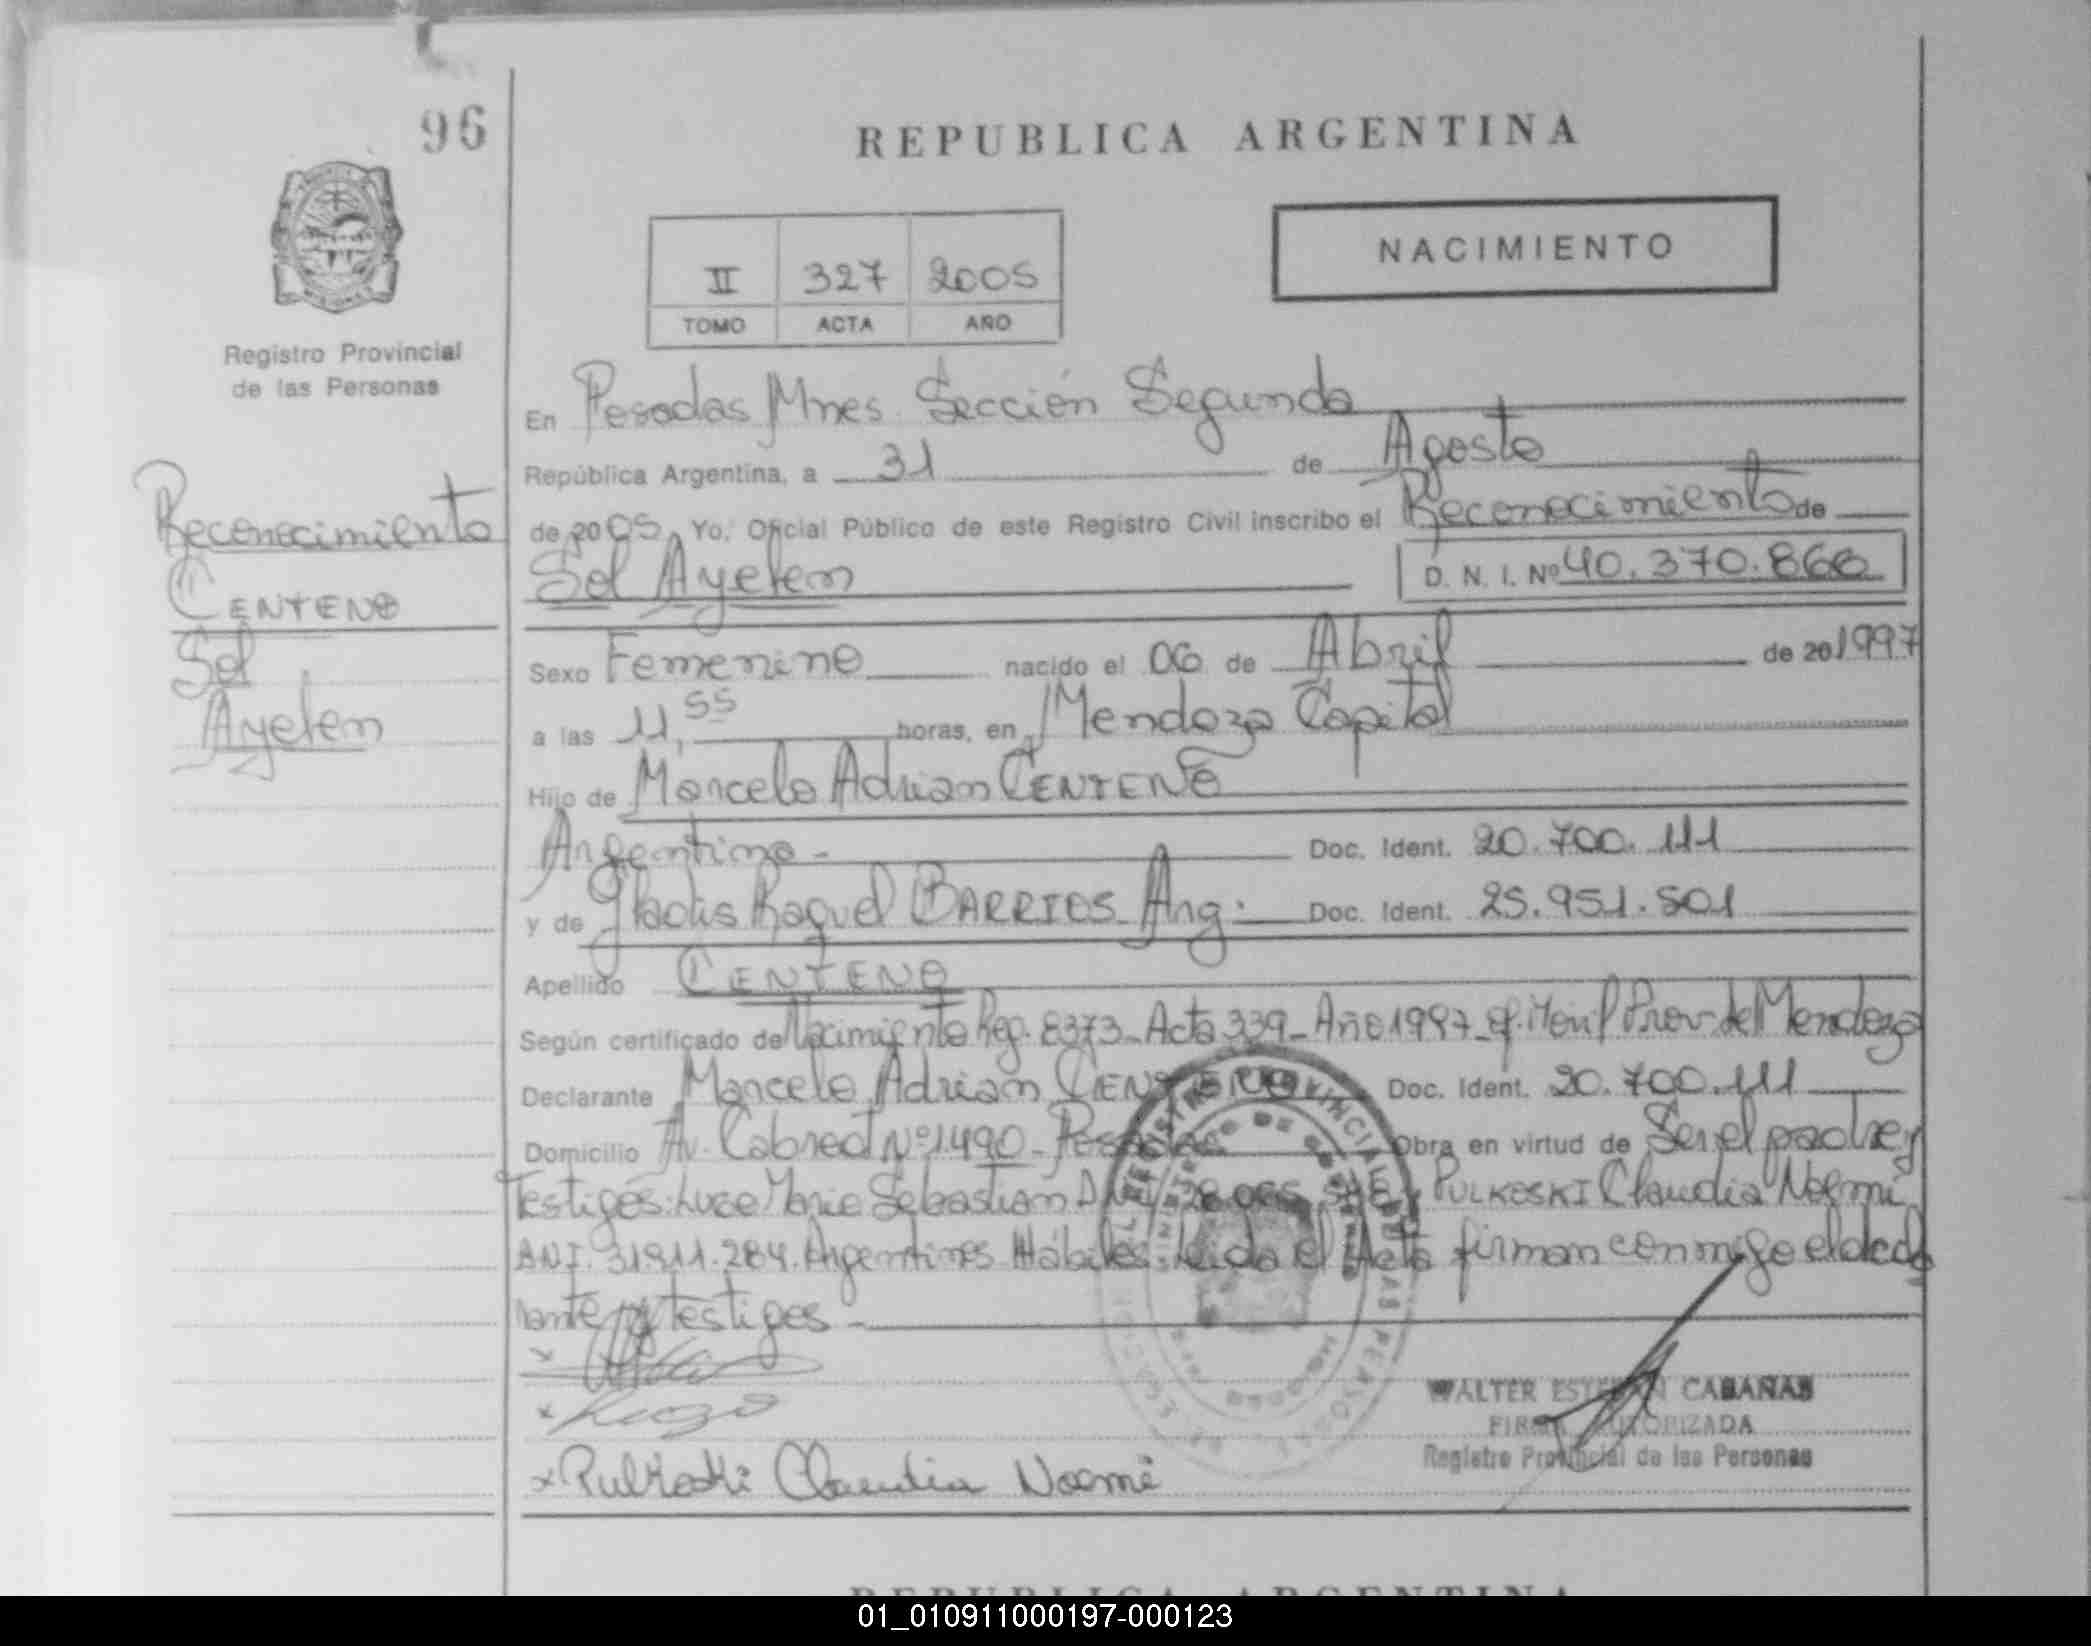 96
REPUBLICA ARGENTINA
NACIMIENTO
II 327 2005
TOMO ACTA AÑO
Registro Provincial
de las Personas
En Posadas Mnes. Sección Segunda
República Argentina, a 31 de Agosto
de 2005, Yo, Oficial Público de este Registro Civil inscribo el Reconocimiento de
Sol Ayelen D. N. I. Nº 40.370.866
Reconocimiento
CENTENO
Sol
Ayelen
Sexo Femenino nacido el 06 de Abril de 20 1997
a las 11,55 horas, en Mendoza Capital
Hijo de Marcelo Adrian CENTENO
Argentino - Doc. Ident. 20.700.111
y de Gladis Raquel BARRIOS Arg. Doc. Ident. 25.951.501
Apellido CENTENO
Según certificado de Nacimiento Reg. 8373 - Acta 339 - Año 1997 - Prov. de Mendoza
Declarante Marcelo Adrian CENTENO Doc. Ident. 20.700.111
Domicilio Av. Cabred Nº 1490 - Posadas Obra en virtud de Ser el padre y
Testigos: Sebastian PULKOSKI Claudia Noemi
DNI. 31.911.284. Argentinos Hábiles. Leida el Acta firman conmigo el decla
rante y testigos -
x
x
x Pulkoski Claudia Noemi
WALTER ESTEBAN CABAÑAS
FIRMA AUTORIZADA
Registro Provincial de las Personas
REPUBLICA ARGENTINA
01_010911000197-000123